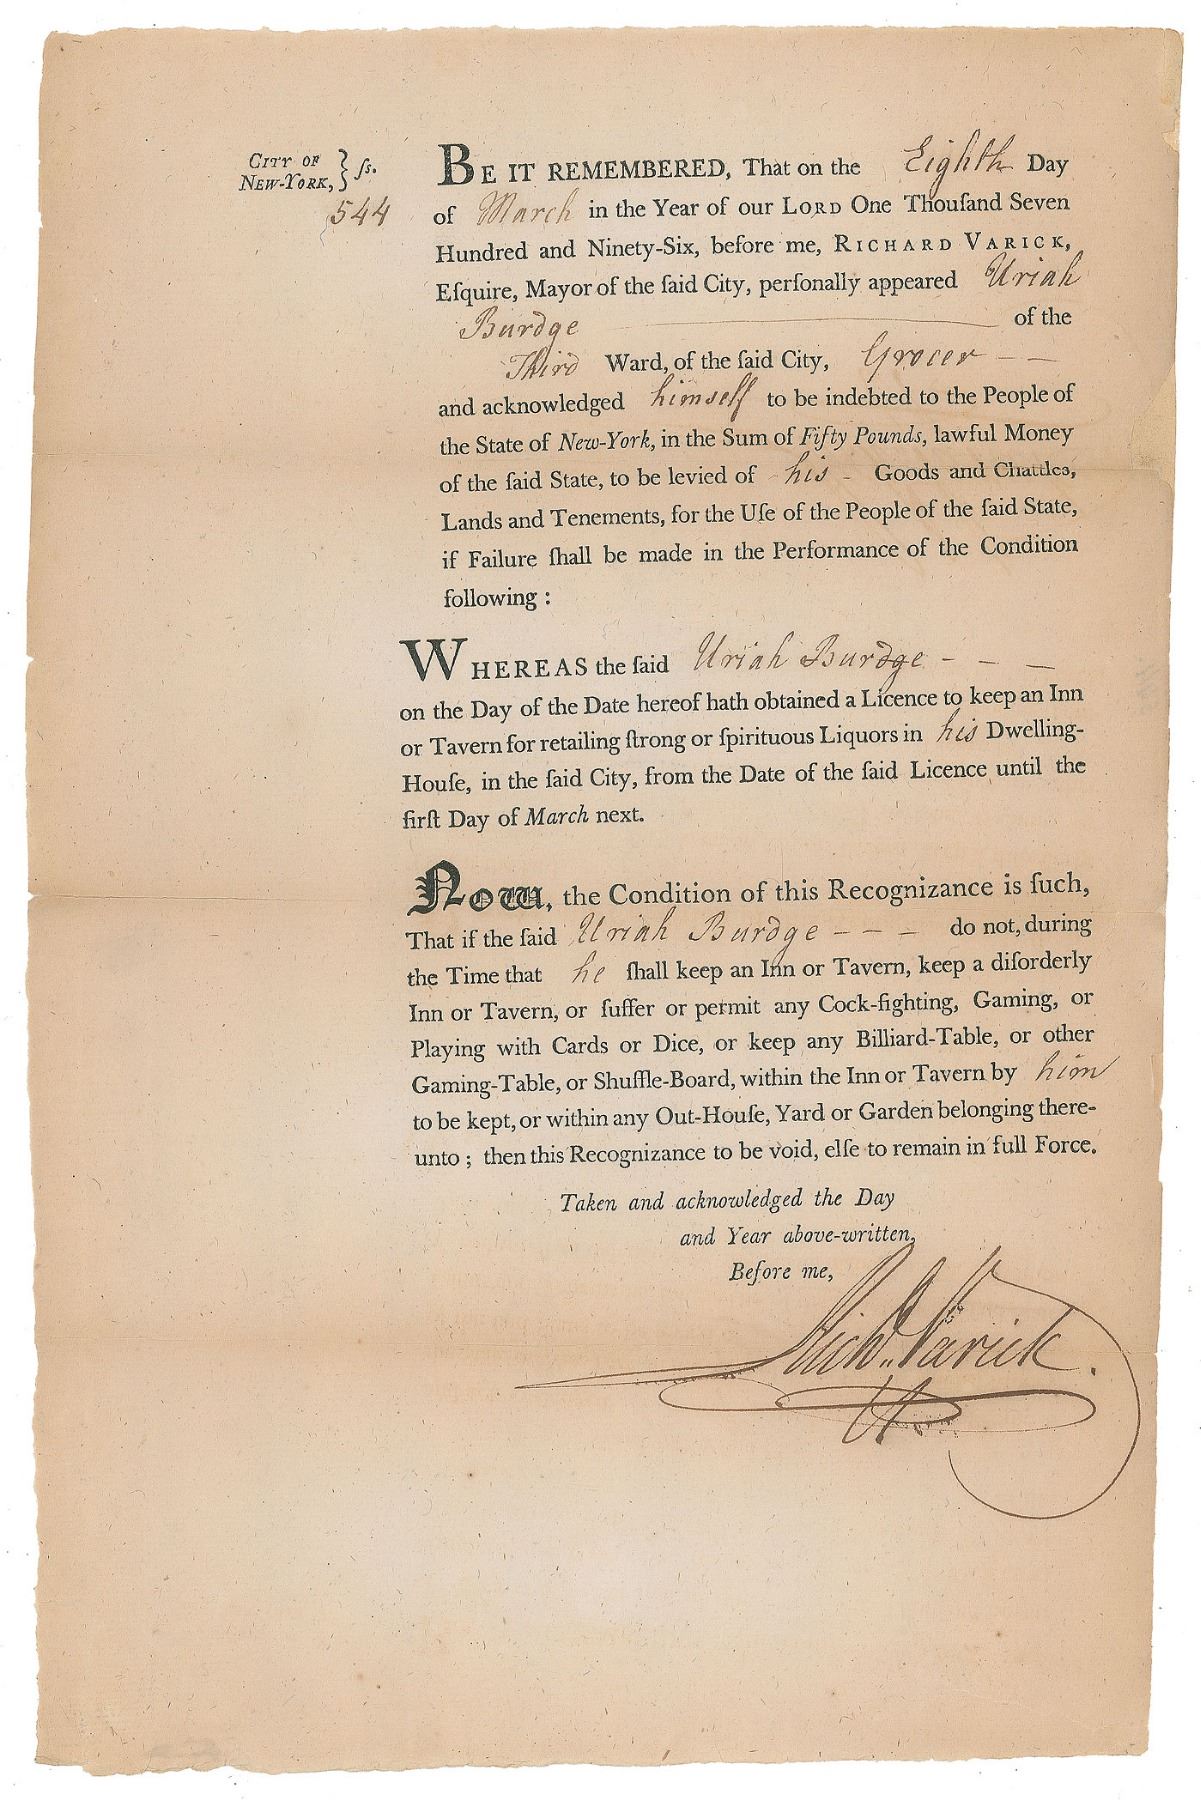 CITY OF
NEW-YORK, } ſs.
544
BE IT REMEMBERED, That on the Eighth Day
of March in the Year of our LORD One Thouſand Seven
Hundred and Ninety-Six, before me, RICHARD VARICK,
Eſquire, Mayor of the ſaid City, perſonally appeared Uriah
Burdge of the
Third Ward, of the ſaid City, Grocer - -
and acknowledged himself to be indebted to the People of
the State of New-York, in the Sum of Fifty Pounds, lawful Money
of the ſaid State, to be levied of his - Goods and Chattles,
Lands and Tenements, for the Uſe of the People of the ſaid State,
if Failure ſhall be made in the Performance of the Condition
following :
WHEREAS the ſaid Uriah Burdge - - -
on the Day of the Date hereof hath obtained a Licence to keep an Inn
or Tavern for retailing ſtrong or ſpirituous Liquors in his Dwelling-
Houſe, in the ſaid City, from the Date of the ſaid Licence until the
firſt Day of March next.
Now, the Condition of this Recognizance is ſuch,
That if the ſaid Uriah Burdge - - - do not, during
the Time that he ſhall keep an Inn or Tavern, keep a diſorderly
Inn or Tavern, or ſuffer or permit any Cock-fighting, Gaming, or
Playing with Cards or Dice, or keep any Billiard-Table, or other
Gaming-Table, or Shuffle-Board, within the Inn or Tavern by him
to be kept, or within any Out-Houſe, Yard or Garden belonging there-
unto ; then this Recognizance to be void, elſe to remain in full Force.
Taken and acknowledged the Day
and Year above-written,
Before me,
Richd. Varick.